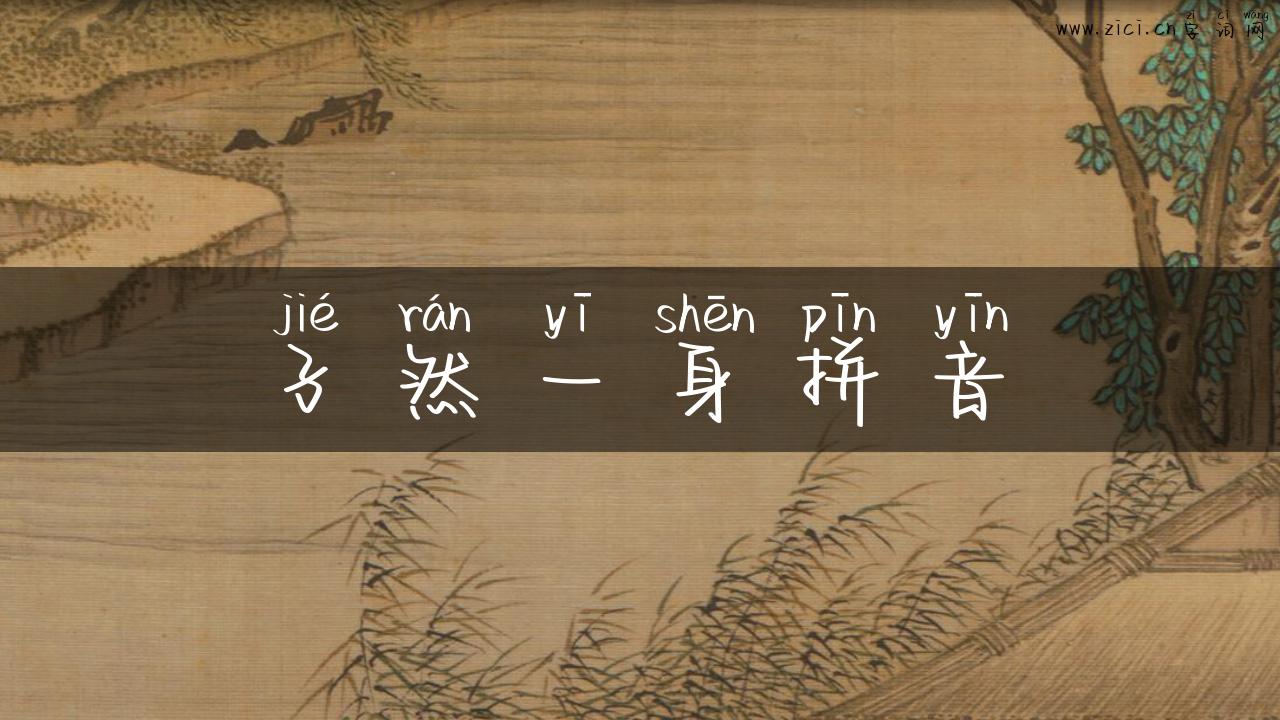 zì cí wǎng
www.zici.cn字词网
jié rán yī shēn pīn yīn
孑然一身拼音